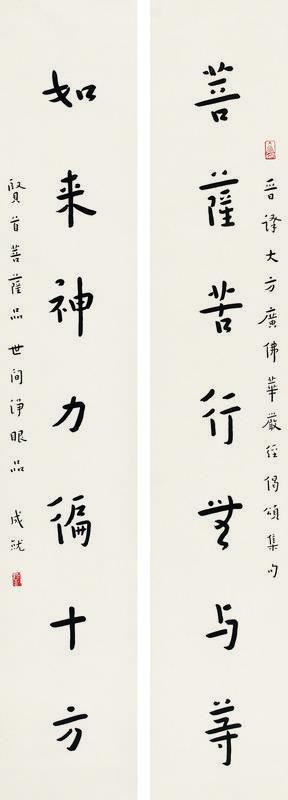 晋译大方廣佛華嚴経偈頌集句
菩薩苦行无与等
如来神力徧十方
賢首菩薩品 世间浄眼品 成就